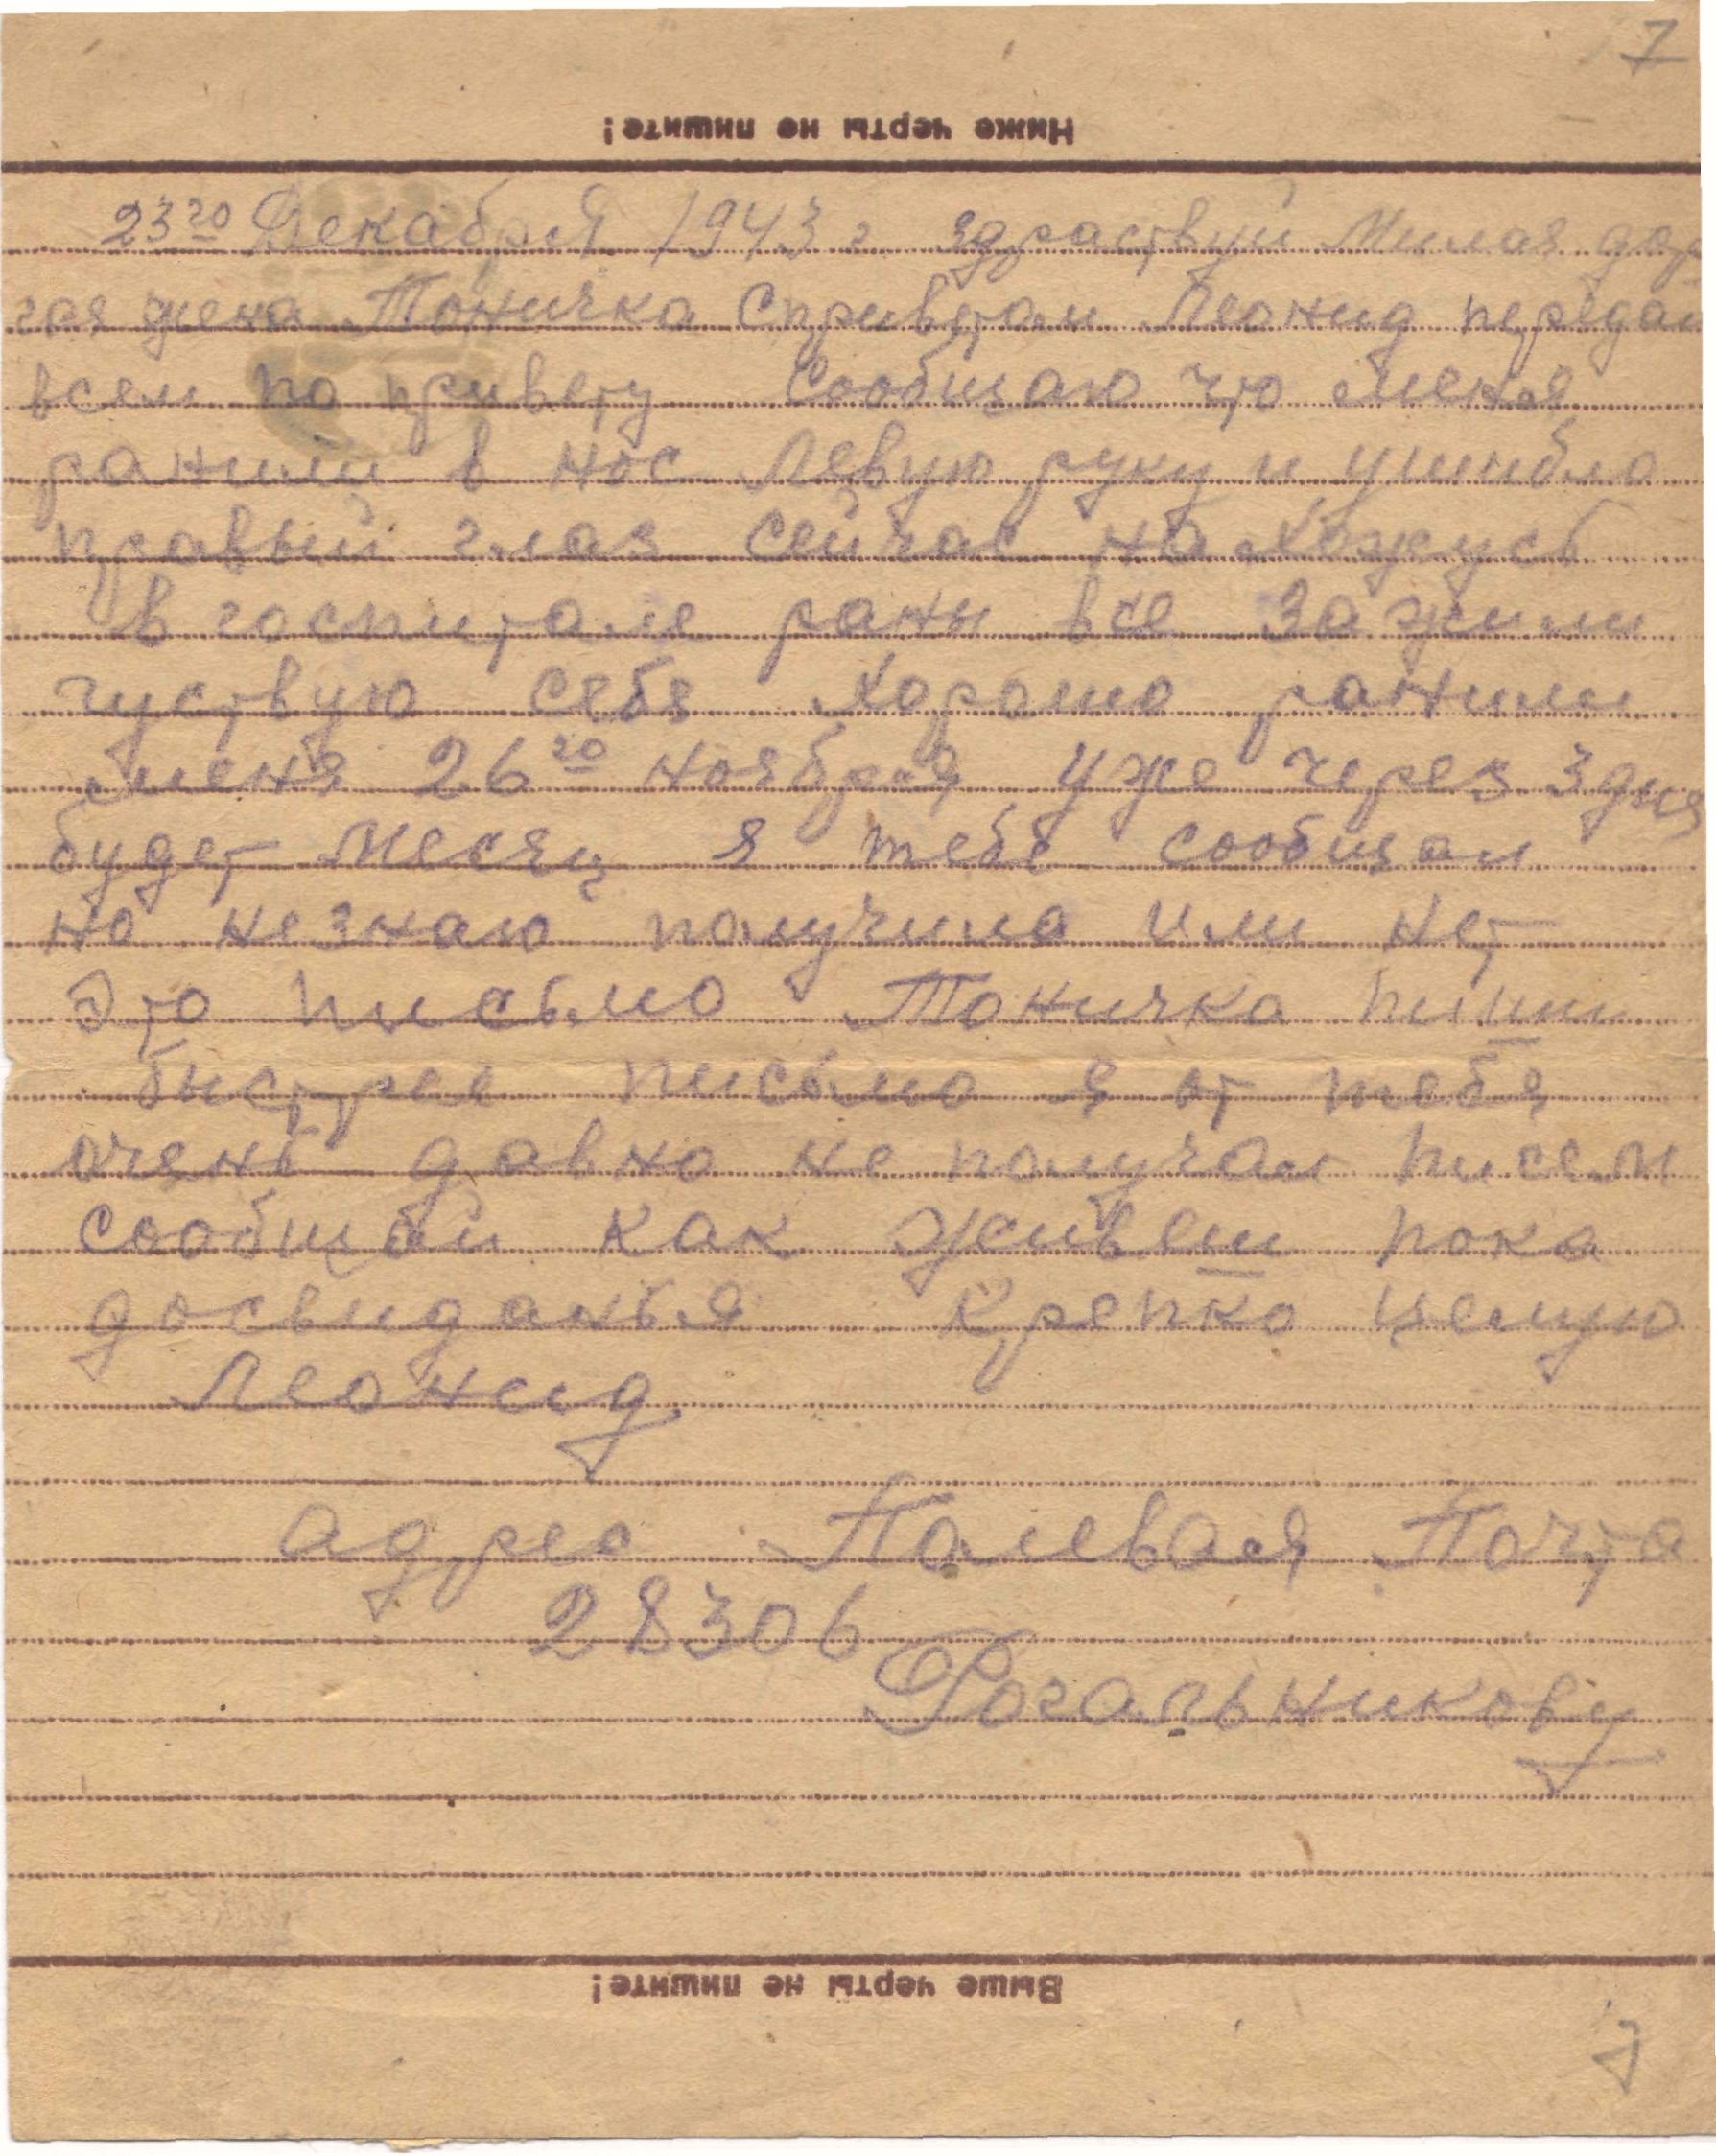 7
Ниже черты не пишите!
23го Декабря 1943 г здраствуй Милая доро
гая жена Тоничка Сприветом Леонид передай
всем по привету Сообщаю что меня
ранили в нос Левую руку и ушибло
правый глаз сейчас на хожусь
в госпитале раны все зажили
чуствую себя хорошо ранили
меня 26го ноября уже через 3 дня
будет месяц я тебе сообщал
но незнаю получила или нет
это письмо Тоничка пиши
быстрее письмо я от тебя
очень давно не получал писем
сообщай как живеш пока
досвиданья Крепко целую
Леонид
адрес Полевая Почта
28306
Рогальникову
Выше черты не пишите!